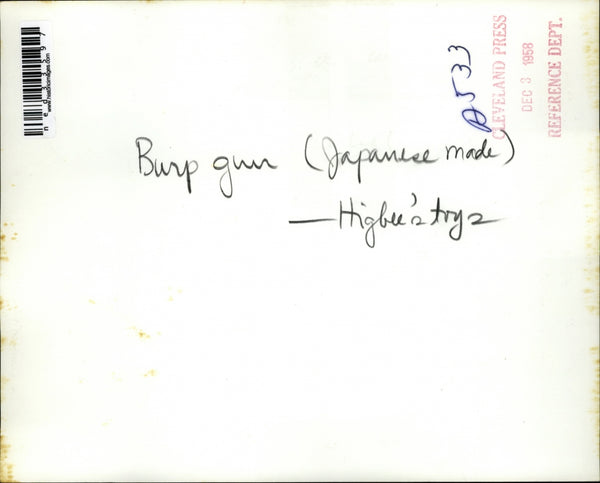 Burp gun (Japanese made)
— Higbee's toys
A533
CLEVELAND PRESS
DEC 3 1958
REFERENCE DEPT.
www.historicimages.com